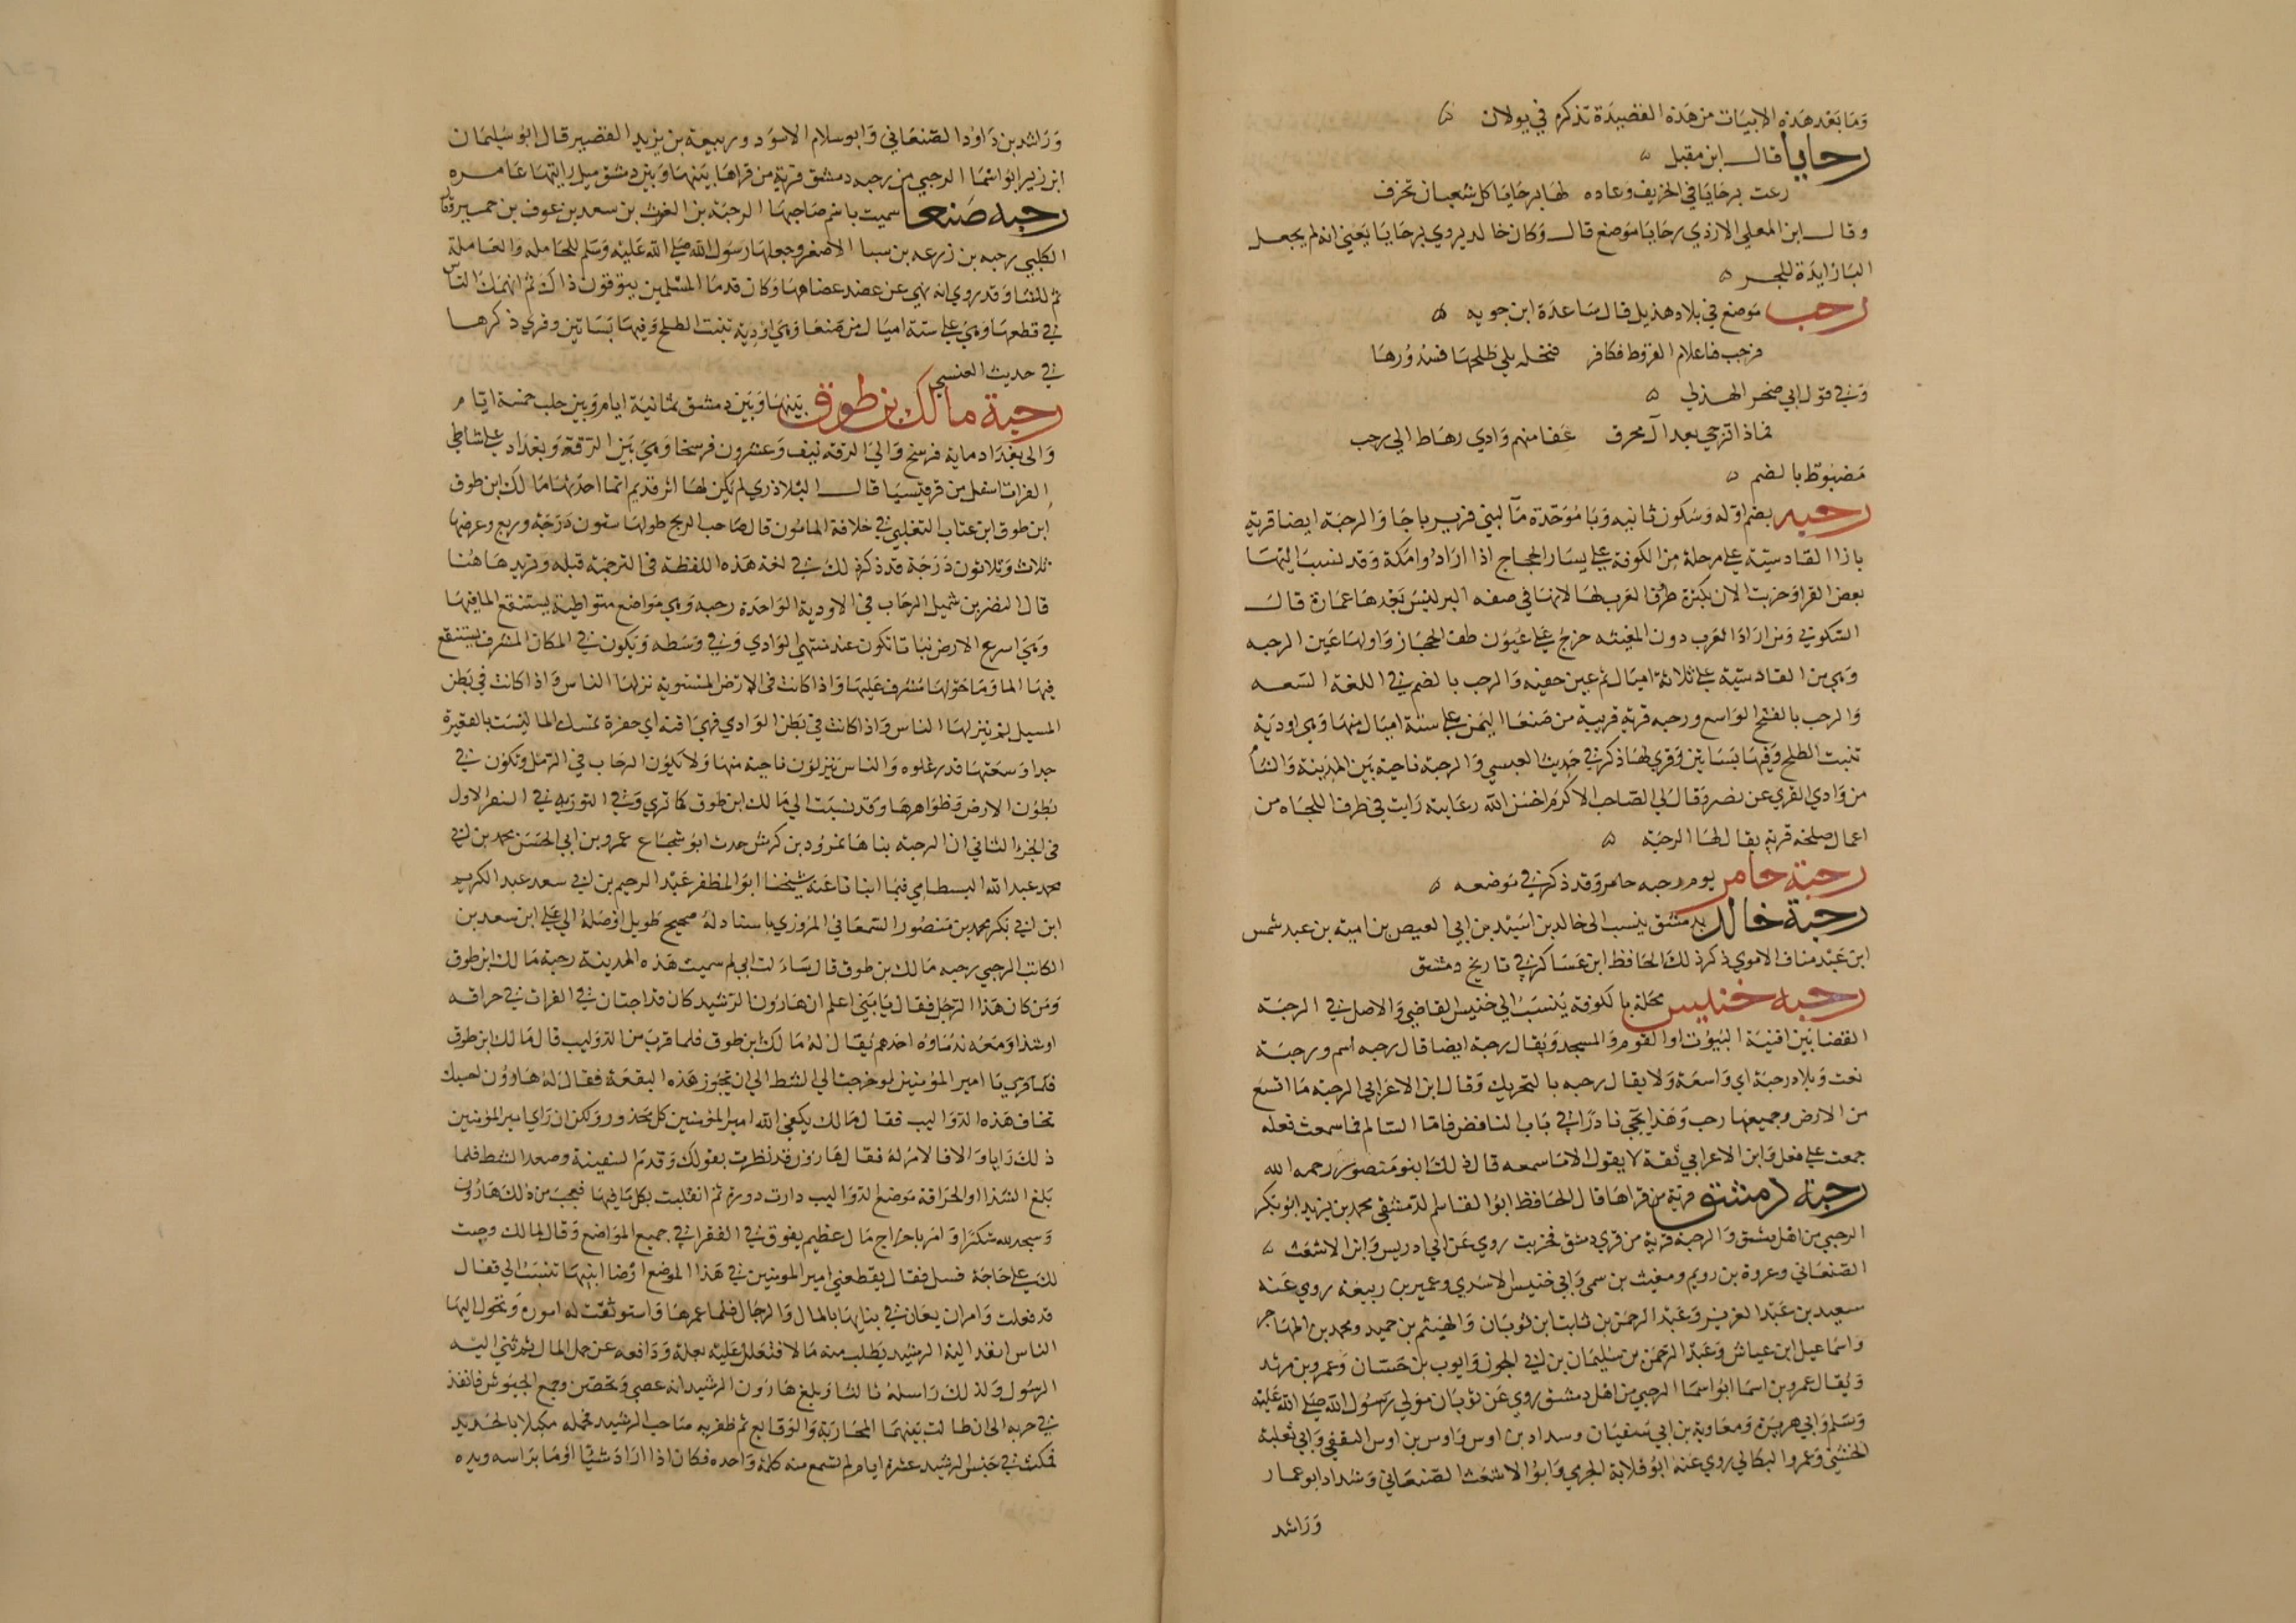 وما بعد هذه الابيات من هذه القصيدة تذكر في يولان
رحايا قال ابن مقبل
رعت برحايا في الخريف وعاده لها برحايا كل شعبان تخرف
وقال ابن المعلي الازدي رحايا موضع قال وكان خالد يروي برحايا يعني انه لم يجعل
البا زايدة للجر
رحب موضع في بلاد هذيل قال ساعدة ابن جويه
فرحب فاعلام الفروط فكافر فنخله بلي طلحها فسدورها
وفي قول ابي صخر الهذلي
فماذا ترجي بعد آل محرق عفا منهم وادي رهاط الي رحب
مضبوط بالضم
رحبه بضم اوله وسكون ثانيه وبا موحدة مآ لبني فرير باجا والرحبة ايضا قرية
بازا القادسية علي مرحلة من الكوفة علي يسار الحجاج اذا ارادوا مكة وقد نسب اليها
بعض القرا وخربت الان بكثرة طرق العرب لها لانها في صفه البر ليس بعدها عمارة قال
السكوني ومن اراد الغرب دون المغيثه خرج علي عيون طف الحجاز واولها عين الرحبه
وهي من القادسية علي ثلاثة اميال ثم عين خفيه والرحب بالضم في اللغة السعه
والرحب بالفتح الواسع ورحبه قرية قريبة من صنعا اليمن علي ستة اميال منها وهي اودية
تنبت الطلح وفيها بساتين وقري لها ذكر في حديث العبسي والرحبة ناحية بين المدينة والشأ
من وادي القري عن نصر وقال لي الصاحب الاكرم احسن الله رعايته رايت في طرف اللجاه من
اعمال صلخد قرية يقال لها الرحبة
رحبة حامر يوم رحبه حامر وقد ذكر في موضعه
رحبة خالد بدمشق ينسب الى خالد بن اسيد بن ابي العيص بن امية بن عبد شمس
ابن عبد مناف الاموي ذكر ذلك الحافظ ابن عساكر في تاريخ دمشق
رحبه خنيس محلة بالكوفة ينسب الي خنيس القاضي والاصل في الرحبة
الفضا بين افنية البيوت او القوم والمسجد ويقال رحبة ايضا قال رحبه اسم ورحبة
نعت وبلاد رحبة اي واسعة ولا يقال رحبه بالتحريك وقال ابن الاعرابي الرحبة ما اتسع
من الارض وجمعها رحب وهذا يجي نادرا في باب الناقص فاما السالم فما سمعت فعله
جمعت علي فعل وابن الاعرابي ثقة لا يقول الا ما سمعه قال ذلك ابو منصور رحمه الله
رحبة دمشق قرية من قراها قال الحافظ ابو القاسم الدمشقي محمد بن يزيد ابو بكر
الرحبي من اهل دمشق والرحبة قرية من قري دمشق فخربت روي عن ابي ادريس وابن الاشعث
الصنعاني وعروة بن رويم ومغيث بن سمي وابي خنيس الاسدي وعمير بن ربيعة روي عنه
سعيد بن عبد العزيز وعبد الرحمن بن ثابت ابن ثوبان والهيثم بن حميد ومحمد بن المهاجر
واسماعيل ابن عياش وعبد الرحمن بن سليمان بن ابي الجون وايوب بن حسان وعمرو بن مرثد
ويقال عمرو بن اسما ابو اسما الرحبي من اهل دمشق روي عن ثوبان مولي رسول الله صلي الله عليه
وسلم وابي هريرة ومعاوية بن ابي سفيان وسداد بن اوس واوس بن اوس الثقفي وابي ثعلبة
الخشني وعمرو البكالي روي عنه ابو قلابة الجرمي وابو الاشعث الصنعاني وشداد ابو عمار
وراشد
وراشد بن داود الصنعاني وابو سلام الاسود وربيعة بن يزيد القصير قال ابو سليمان
ابن زبر ابو اسما الرحبي من رحبه دمشق قرية من قراها بينها وبين دمشق ميل رايتها عامره
رحبه صنعا سميت باسم صاحبها الرحبة بن الغوث بن سعد بن عوف بن حمير وقال
الكلبي رحبه بن زرعه بن سبا الاصغر وجعلها رسول الله صلي الله عليه وسلم للحامله والعاملة
ثم للنسا وقد روي انه نهي عن عضد عضاهها وكان قدما المسلمين يتوقون ذاك ثم انهمك الناس
في قطعها وهي علي ستة اميال من صنعا وهي اودية تنبت الطلح وفيها بساتين وقري ذكرها
في حديث العنسي
رحبة مالك بن طوق بينها وبين دمشق ثمانية ايام وبين حلب خمسة ايام
والى بغداد ماية فرسخ والي الرقة نيف وعشرون فرسخا وهي بين الرقة وبغداد علي شاطي
الفرات اسفل من قرقيسيا قال البلاذري لم يكن لها اثر قديم انما احدثها مالك ابن طوق
ابن طوق ابن عتاب التغلبي في خلافة المامون قال صاحب الزيج طولها ستون درجة وربع وعرضها
ثلاث وثلاثون درجة قد ذكر ذلك في لغة هذه اللفظة في الترجمة قبله ونزيد هاهنا
قال النضر بن شميل الرحاب في الاودية الواحدة رحبه وهي مواضع متواطية يستنقع الما فيها
وهي اسرع الارض نباتا تكون عند منتهي الوادي وفي وسطه وتكون في المكان المشرف يستنقع
فيها الما وما حولها مشرف عليها واذا كانت في الارض المستوية نزلها الناس واذا كانت في بطن
المسيل لم ينزلها الناس واذا كانت في بطن الوادي فهي اقنه اي حفرة تمسك الما ليست بالقعيرة
جدا وسعتها قدر غلوه والناس ينزلون ناحية منها ولا تكون الرحاب في الرمل وتكون في
بطون الارض وظواهرها وقد نسبت الي مالك ابن طوق كما تري وفي التوراة في السفر الاول
في الجزء الثاني ان الرحبة بناها نمرود بن كوش حدث ابو شجاع عمرو بن ابي الحسن محمد بن ابي
محمد عبد الله البسطامي فيما انبانا عنه شيخنا ابو المظفر عبد الرحيم بن ابي سعد عبد الكريم
ابن ابي بكر محمد بن منصور السمعاني المروزي باسناد له صحيح طويل اوصله الي علي ابن سعد بن
الكاتب الرحبي رحبه مالك بن طوق قال ساءلت ابي لم سميت هذه المدينة رحبة مالك ابن طوق
ومن كان هذا الرجل فقال يا بني اعلم ان هارون الرشيد كان قد اجتاز في الفرات في حراقه
او شذا ومعه ندماوه احدهم يقال له مالك ابن طوق فلما قرب من الدواليب قال مالك ابن طوق
يا امير المؤمنين لو خرجت الي الشط الي ان تجوز هذه البقعة فقال له هارون احسبك
تخاف هذه الدواليب فقال مالك يكفي الله امير المؤمنين كل محذور ولكن ان راي امير المؤمنين
ذلك رايا والا فالامر له فقال هارون قد تطيرت بقولك وقدم السفينة وصعد الشط فلما
بلغ الشذا او الحراقة موضع الدواليب دارت دورة ثم انقلبت بكل ما فيها فعجب من ذلك هارون
وسجد لله شكرا وامر باخراج مال عظيم يفرق في الفقرا في جميع المواضع وقال لمالك وجبت
لك علي حاجة فسل فقال يقطعني امير المومنين في هذا الموضع ارضا ابنيها تنسب الي فقال
قد فعلت وامر ان يعان في بنايها بالمال والرجال فلما عمرها واستوثقت له اموره وتحول اليها
الناس انفذ اليه الرشيد يطلب منه مالا فتعلل عليه بعلة ودافعه عن حمل المال ثم ثني اليه
الرسول وكذلك راسله ثالثا وبلغ هارون الرشيد انه عصي وتحصن وجمع الجيوش فانفذ
في حربه الي ان طالت بينهما المحاربة والوقايع ثم ظفر به صاحب الرشيد فحمله مكبلا بالحديد
فمكث في حبس الرشيد عشرة ايام لم تسمع منه كلمة واحده فكان اذا اراد شيئا اوما براسه ويده